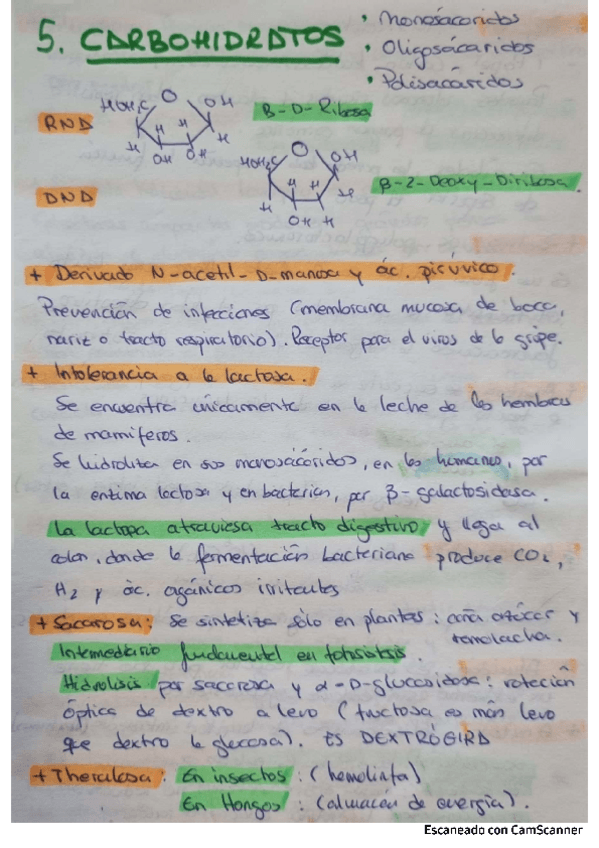 5. CARBOHIDRATOS
• Monosacáridos
• Oligosacáridos
• Polisacáridos
RND
HOH₂C O OH
H H H H
OH OH
β-D-Ribosa
DND
HOH₂C O OH
H H H H
OH H
β-2-Deoxy-D-ribosa
+ Derivado N-acetil-D-manosa y ác. pirúvico.
Prevención de infecciones (membrana mucosa de boca,
nariz o tracto respiratorio). Receptor para el virus de la gripe.
+ Intolerancia a la lactosa.
Se encuentra únicamente en la leche de las hembras
de mamíferos.
Se hidroliza en sus monosacáridos, en los humanos, por
la enzima lactosa y en bacterias, por β-galactosidasa.
La lactosa atraviesa tracto digestivo y llega al
colon, donde la fermentación bacteriana produce CO₂,
H₂ y ác. orgánicos irritantes
+ Sacarosa: Se sintetiza sólo en plantas: caña azúcar y
remolacha.
Intermediario fundamental en fotosístesis.
Hidrolisis por sacarosa y α-D-glucosidosa: rotación
óptica de dextro a levo (fructosa es más levo
que dextro la glucosa). ES DEXTRÓGIRA
+ Threalosa: En insectos: (hemolinfa)
En Hongos: (almacén de energía).
Escaneado con CamScanner